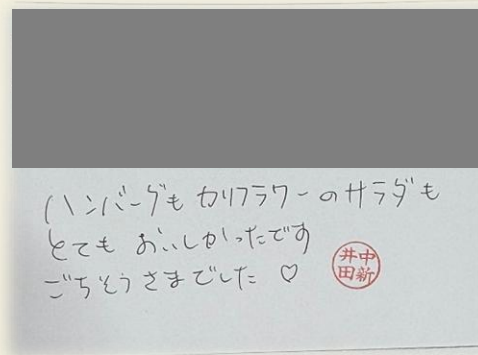 ハンバーグも カリフラワーのサラダも
とても おいしかったです
ごちそうさまでした ♡
中新井田